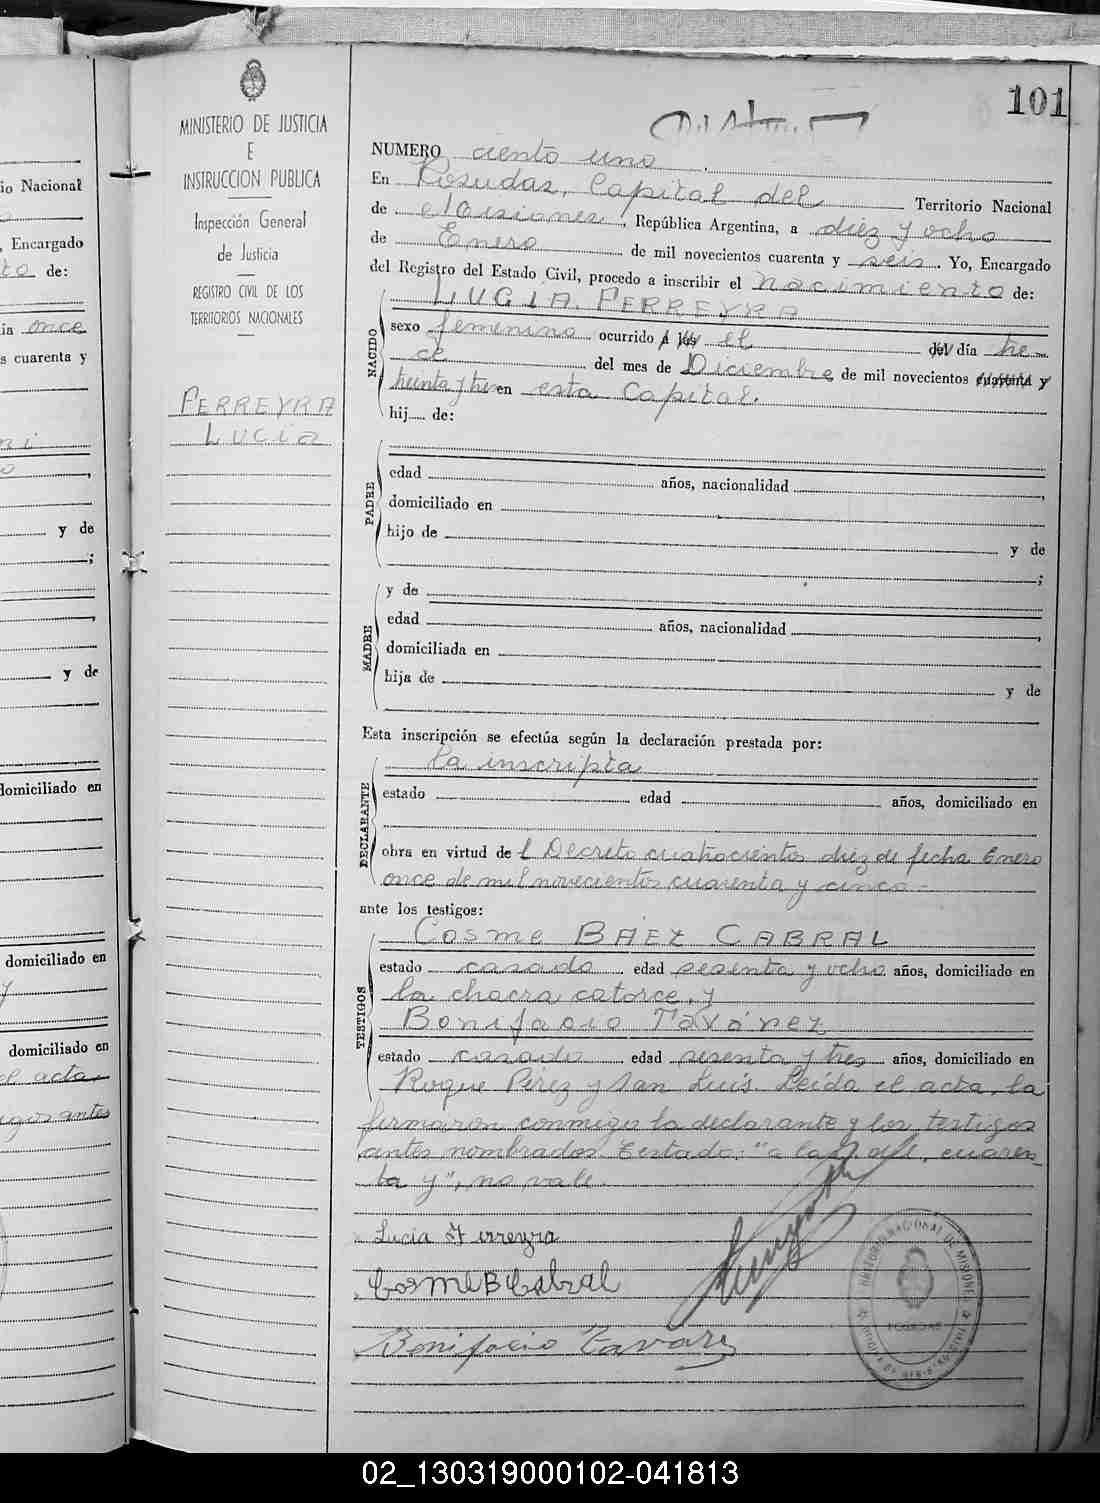 101
MINISTERIO DE JUSTICIA
E
INSTRUCCION PUBLICA
Inspección General
de Justicia
REGISTRO CIVIL DE LOS
TERRITORIOS NACIONALES
FERREYRA
Lucia
NUMERO ciento uno
En Posadas, Capital del Territorio Nacional
de Misiones, República Argentina, a diez y ocho
de Enero de mil novecientos cuarenta y seis. Yo, Encargado
del Registro del Estado Civil, procedo a inscribir el nacimiento de:
NACIDO
LUCIA FERREYRA
sexo femenino ocurrido a las el del día tre
ce del mes de Diciembre de mil novecientos cuarenta y
treinta y tres en esta Capital.
hij de:
PADRE
edad años, nacionalidad
domiciliado en
hijo de y de
;
MADRE
y de
edad años, nacionalidad
domiciliada en
hija de y de
Esta inscripción se efectúa según la declaración prestada por:
DECLARANTE
la inscripta
estado edad años, domiciliado en
obra en virtud de l Decreto cuatrocientos diez de fecha Enero
once de mil novecientos cuarenta y cinco.-
ante los testigos:
TESTIGOS
Cosme BAEZ CABRAL
estado casado edad sesenta y ocho años, domiciliado en
la chacra catorce, y
Bonifacio Tavárez
estado casado edad sesenta y tres años, domiciliado en
Roque Pérez y San Luis. Leída el acta, la
firmaron conmigo la declarante y los testigos
antes nombrados. Testado: "a las, del, cuaren-
ta y", no vale.
Lucia Ferreyra
Cosme B Cabral
Bonifacio Tavarez
io Nacional
, Encargado
to de:
ia once
s cuarenta y
y de
;
y de
domiciliado en
domiciliado en
y
domiciliado en
el acta,
igos antes
02_130319000102-041813